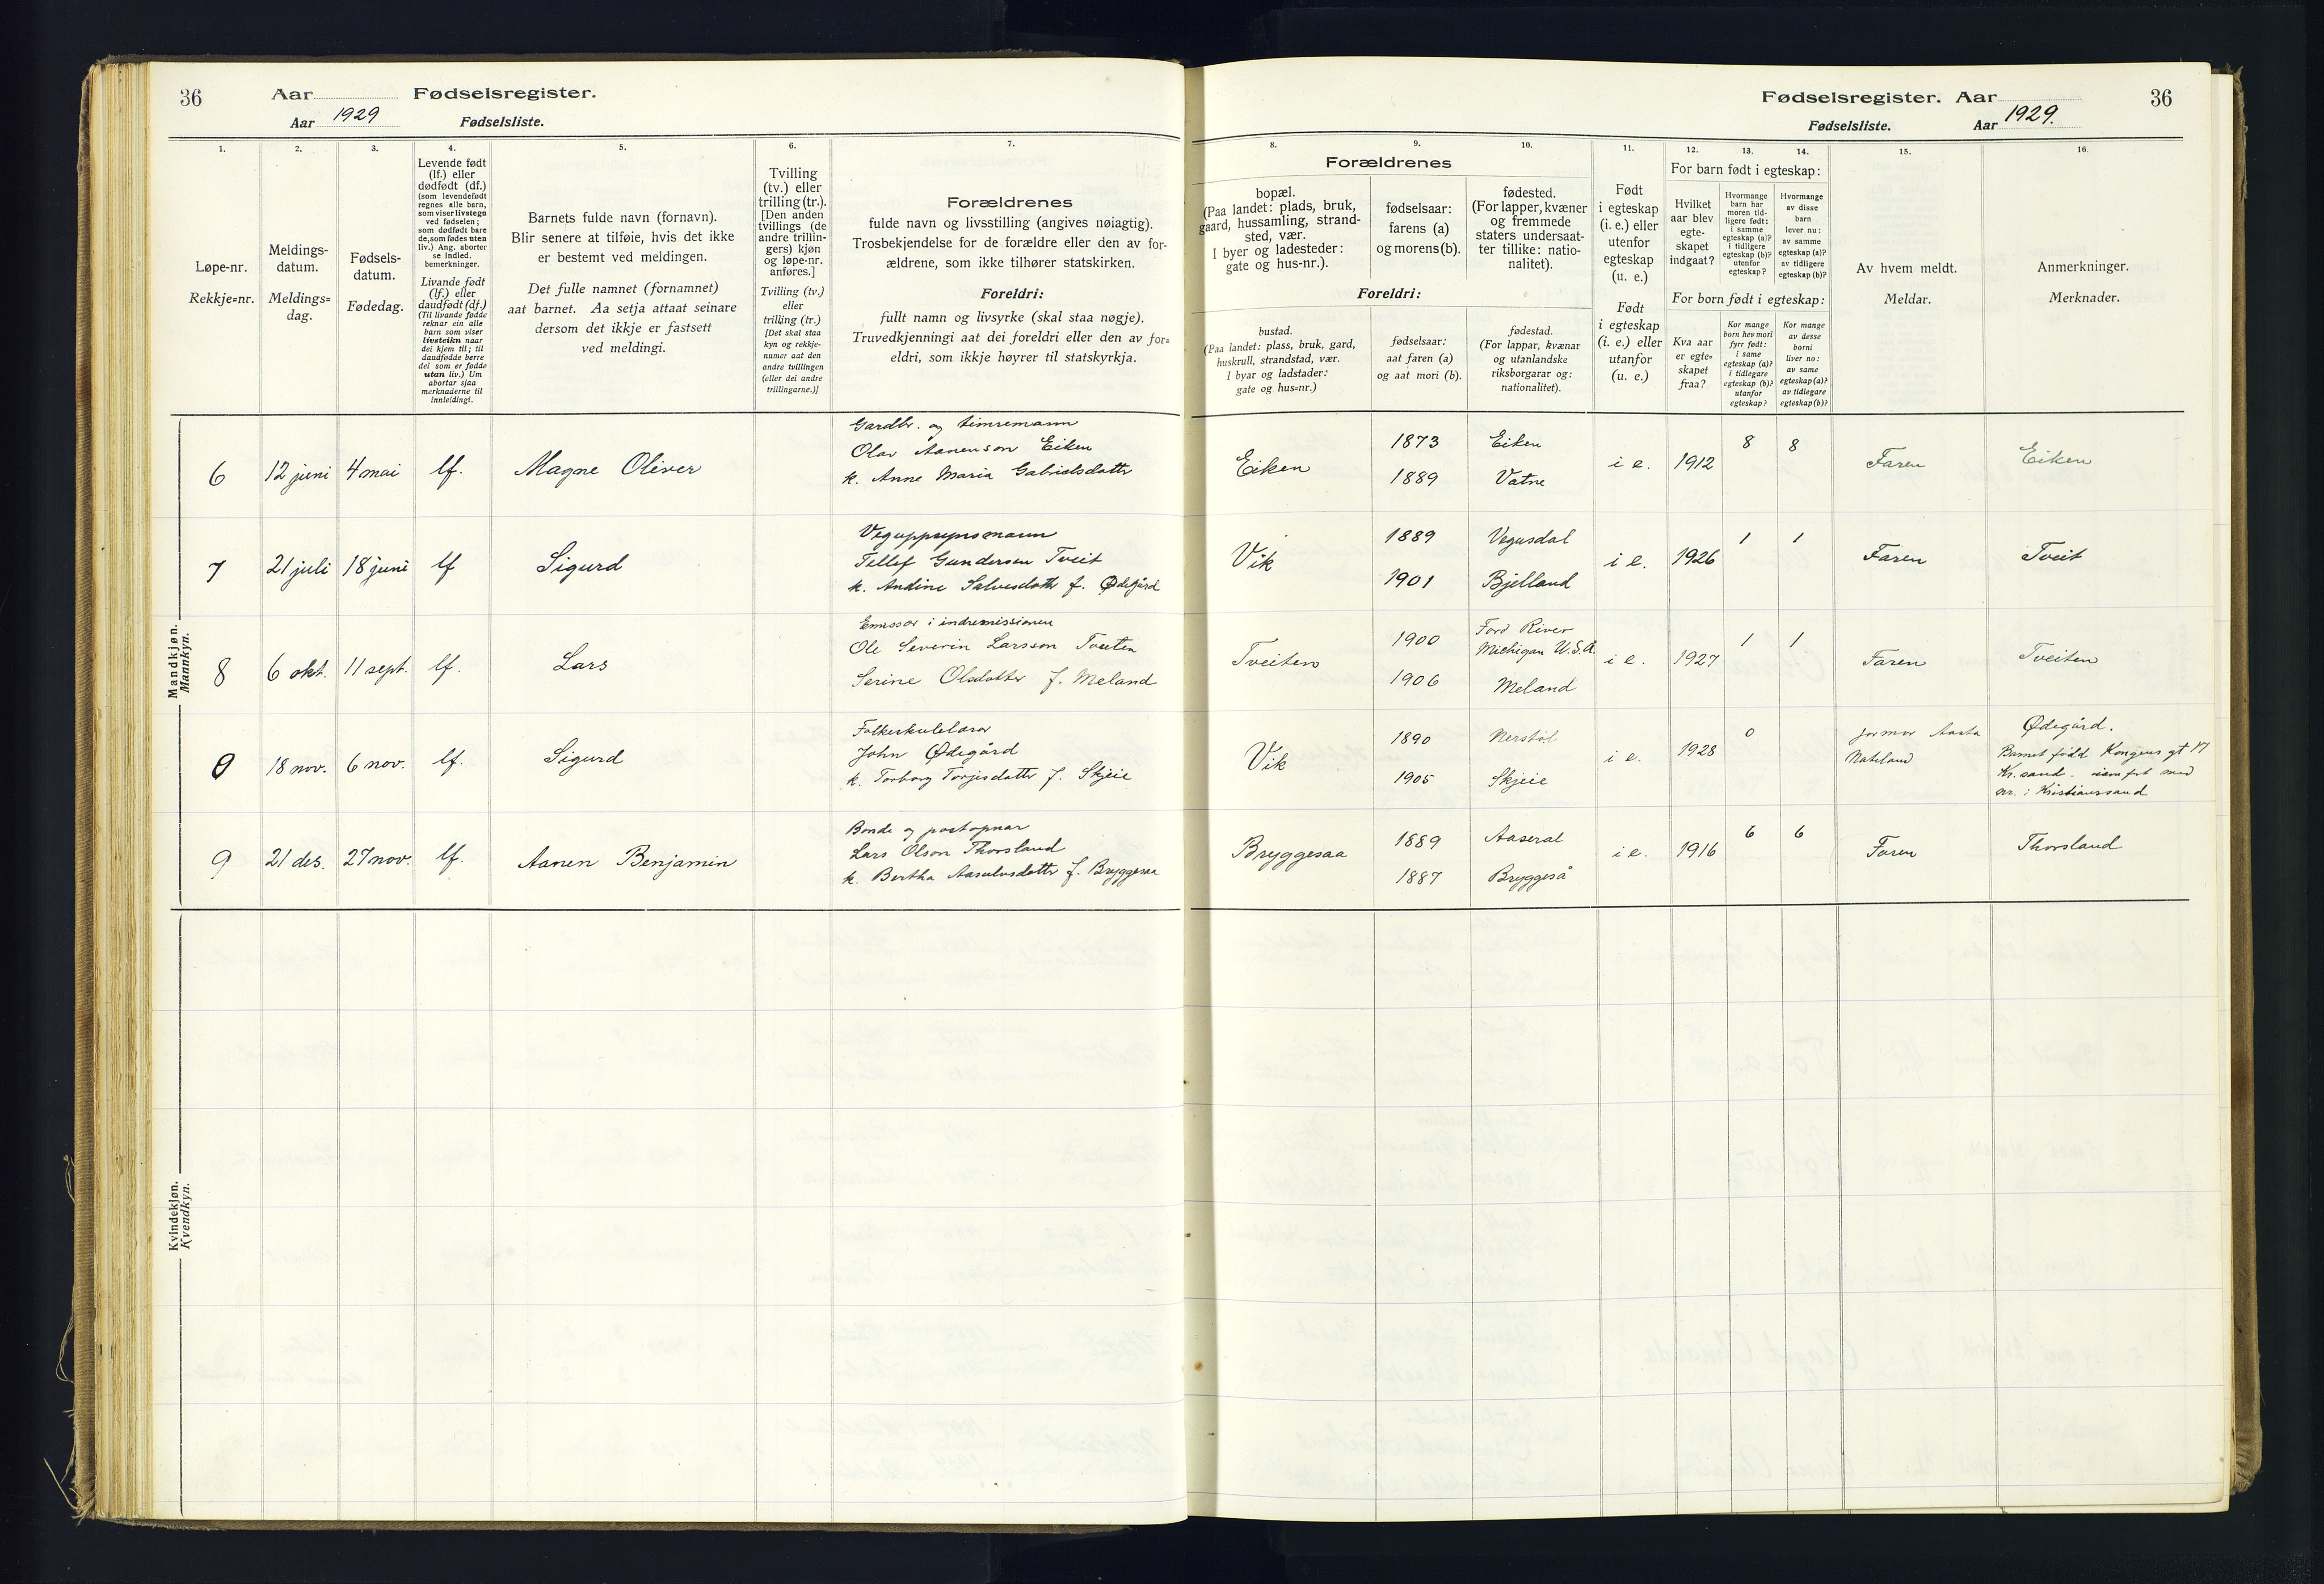 36
Aar
Fødselsregister.
Aar 1929
Fødselsliste.
1.
2.
3.
4.
5.
6.
7.
Løpe-nr.
Rekkje=nr.
Meldings-
datum.
Meldings=
dag.
Fødsels-
datum.
Fødedag.
Levende født
(lf.) eller
dødfødt (df.)
(som levendefødt
regnes alle barn,
som viser livstegn
ved fødselen;
som dødfødt bare
de, som fødes uten
liv.) Ang. aborter
se indled.
bemerkninger.
Livande født
(lf.) eller
daudfødt (df.)
(Til livande fødde
reknar ein alle
barn som viser
livsteikn naar
dei kjem til; til
daudfødde berre
dei som er fødde
utan liv.) Um
abortar sjaa
merknaderne til
innleidingi.
Barnets fulde navn (fornavn).
Blir senere at tilføie, hvis det ikke
er bestemt ved meldingen.
Det fulle namnet (fornamnet)
aat barnet. Aa setja attaat seinare
dersom det ikkje er fastsett
ved meldingi.
Tvilling
(tv.) eller
trilling (tr.).
[Den anden
tvillings (de
andre trillin-
gers) kjøn
og løpe-nr.
anføres.]
Tvilling (tv.)
eller
trilling (tr.)
[Det skal staa
kyn og rekkje-
numer aat den
andre tvillingen
(eller dei andre
trillingarne.)]
Forældrenes
fulde navn og livsstilling (angives nøiagtig).
Trosbekjendelse for de forældre eller den av for-
ældrene, som ikke tilhører statskirken.
Foreldri:
fullt namn og livsyrke (skal staa nøgje).
Truvedkjenningi aat dei foreldri eller den av for=
eldri, som ikkje høyrer til statskyrkja.
Mandkjøn.
Mannkyn.
6 12 juni 4 mai lf. Magne Oliver
Gardbr. og timremann
Olav Aanenson Eiken
k. Anne Maria Gabrielsdatter
7 21 juli 18 juni lf Sigurd
Veguppsynsmann
Tellef Gundersen Tveit
k. Andine Salvesdatter f. Ødegård
8 6 okt. 11 sept. lf. Lars
Emissær i indremissionen
Ole Severin Larsson Tveiten
Serine Olsdatter f. Meland
0 18 nov. 6 nov. lf. Sigurd
Folkeskulelærar
John Ødegård
k. Torborg Torjesdatter f. Skjeie
9 21 des. 27 nov. lf. Aanen Benjamin
Bonde og postopnar
Lars Olson Thorsland
k. Bertha Aasulvsdatter f. Bryggesaa
Kvindekjøn.
Kvendkyn.
Fødselsregister. Aar
36
Fødselsliste.
Aar 1929.
8.
9.
10.
11.
12.
13.
14.
15.
16.
Forældrenes
bopæl.
(Paa landet: plads, bruk,
gaard, hussamling, strand-
sted, vær.
I byer og ladesteder:
gate og hus-nr.).
fødselsaar:
farens (a)
og morens (b).
fødested.
(For lapper, kvæner
og fremmede
staters undersaat-
ter tillike: natio-
nalitet).
Foreldri:
bustad.
(Paa landet: plass, bruk, gard,
huskrull, strandstad, vær.
I byar og ladstader:
gate og hus=nr.)
fødselsaar:
aat faren (a)
og aat mori (b).
fødestad.
(For lappar, kvænar
og utanlandske
riksborgarar og:
nationalitet).
Født
i egteskap
(i. e.) eller
utenfor
egteskap
(u. e.)
Født
i egteskap
(i. e.) eller
utanfor
(u. e.)
For barn født i egteskap:
Hvilket
aar blev
egte-
skapet
indgaat?
Hvormange
barn har
moren tid-
ligere født:
i samme
egteskap (a)?
i tidligere
egteskap (b)?
utenfor
egteskap?
Hvormange
av disse
barn
lever nu:
av samme
egteskap (a)?
av tidligere
egteskap (b)?
For born født i egteskap:
Kva aar
er egte=
skapet
fraa?
Kor mange
born hev mori
fyrr født:
i same
egteskap (a)?
i tidlegare
egteskap (b)?
utanfor
egteskap?
Kor mange
av desse
borni
liver no:
av same
egteskap (a)?
av tidlegare
egteskap (b)?
Av hvem meldt.
Meldar.
Anmerkninger.
Merknader.
Eiken
1873 Eiken
1889 Vatne
i e. 1912 8 8 Faren Eiken
Vik
1889 Vegusdal
1901 Bjelland
i e. 1926 1 1 Faren Tveit
Tveiten
1900 Ford River
Michigan U.S.A.
1906 Meland
i e. 1927 1 1 Faren Tveiten
Vik
1890
1905 Skjeie
i e. 1928 0
jormor Aasta
Ødegård.
Barnet född Kongens gt 17
Kr.sand.
nr. i Kristianssand
Bryggesaa
1889 Aaseral
1887 Bryggeså
i e. 1916 6 6 Faren Thorsland